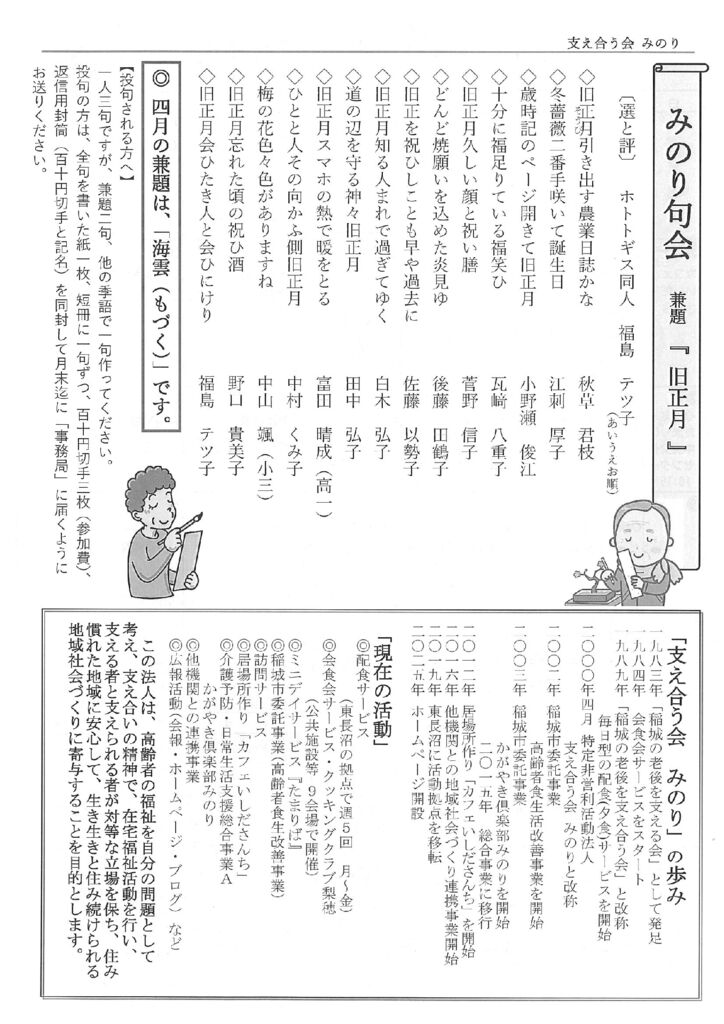 支え合う会 みのり
みのり句会　兼題『旧正月』
〔選と評〕　ホトトギス同人　福島　テツ子
（あいうえお順）
◇旧正月引き出す農業日誌かな　秋草　君枝
◇冬薔薇二番手咲いて誕生日　江刺　厚子
◇歳時記のページ開きて旧正月　小野瀬　俊江
◇十分に福足りている福笑ひ　瓦﨑　八重子
◇旧正月久しい顔と祝い膳　菅野　信子
◇どんど焼願いを込めた炎見ゆ　後藤　田鶴子
◇旧正を祝ひしことも早や過去に　佐藤　以勢子
◇旧正月知る人まれで過ぎてゆく　白木　弘子
◇道の辺を守る神々旧正月　田中　弘子
◇旧正月スマホの熱で暖をとる　富田　晴成（高一）
◇ひとと人その向かふ側旧正月　中村　くみ子
◇梅の花色々色がありますね　中山　颯（小三）
◇旧正月忘れた頃の祝ひ酒　野口　貴美子
◇旧正月会ひたき人と会ひにけり　福島　テツ子
◎ 四月の兼題は、「海雲（もづく）」です。
【投句される方へ】
一人三句ですが、兼題二句、他の季語で一句作ってください。
投句の方は、全句を書いた紙一枚、短冊に一句ずつ、百十円切手三枚（参加費）、
返信用封筒（百十円切手と記名）を同封して月末迄に「事務局」に届くように
お送りください。
「支え合う会　みのり」の歩み
一九八三年「稲城の老後を支える会」として発足
一九八四年　会食会サービスをスタート
一九八九年「稲城の老後を支え合う会」と改称
毎日型の配食(夕食)サービスを開始
二〇〇〇年四月 特定非営利活動法人
支え合う会 みのりと改称
二〇〇一年 稲城市委託事業
高齢者食生活改善事業を開始
二〇〇三年 稲城市委託事業
かがやき倶楽部みのりを開始
二〇一五年　総合事業に移行
二〇一二年 居場所作り「カフェいしださんち」を開始
二〇一六年 他機関との地域社会づくり連携事業開始
二〇一九年 東長沼に活動拠点を移転
二〇二五年 ホームページ開設
「現在の活動」
◎配食サービス
（東長沼の拠点で週５回　月～金）
◎会食会サービス・クッキングクラブ梨穂
（公共施設等 ９会場で開催）
◎ミニデイサービス『たまりば』
◎稲城市委託事業（高齢者食生改善事業）
◎訪問サービス
◎居場所作り「カフェいしださんち」
◎介護予防・日常生活支援総合事業Ａ
かがやき倶楽部みのり
◎他機関との連携事業
◎広報活動（会報・ホームページ・ブログ）など
この法人は、高齢者の福祉を自分の問題として
考え、支え合いの精神で、在宅福祉活動を行い、
支える者と支えられる者が対等な立場を保ち、住み
慣れた地域に安心して、生き生きと住み続けられる
地域社会づくりに寄与することを目的とします。